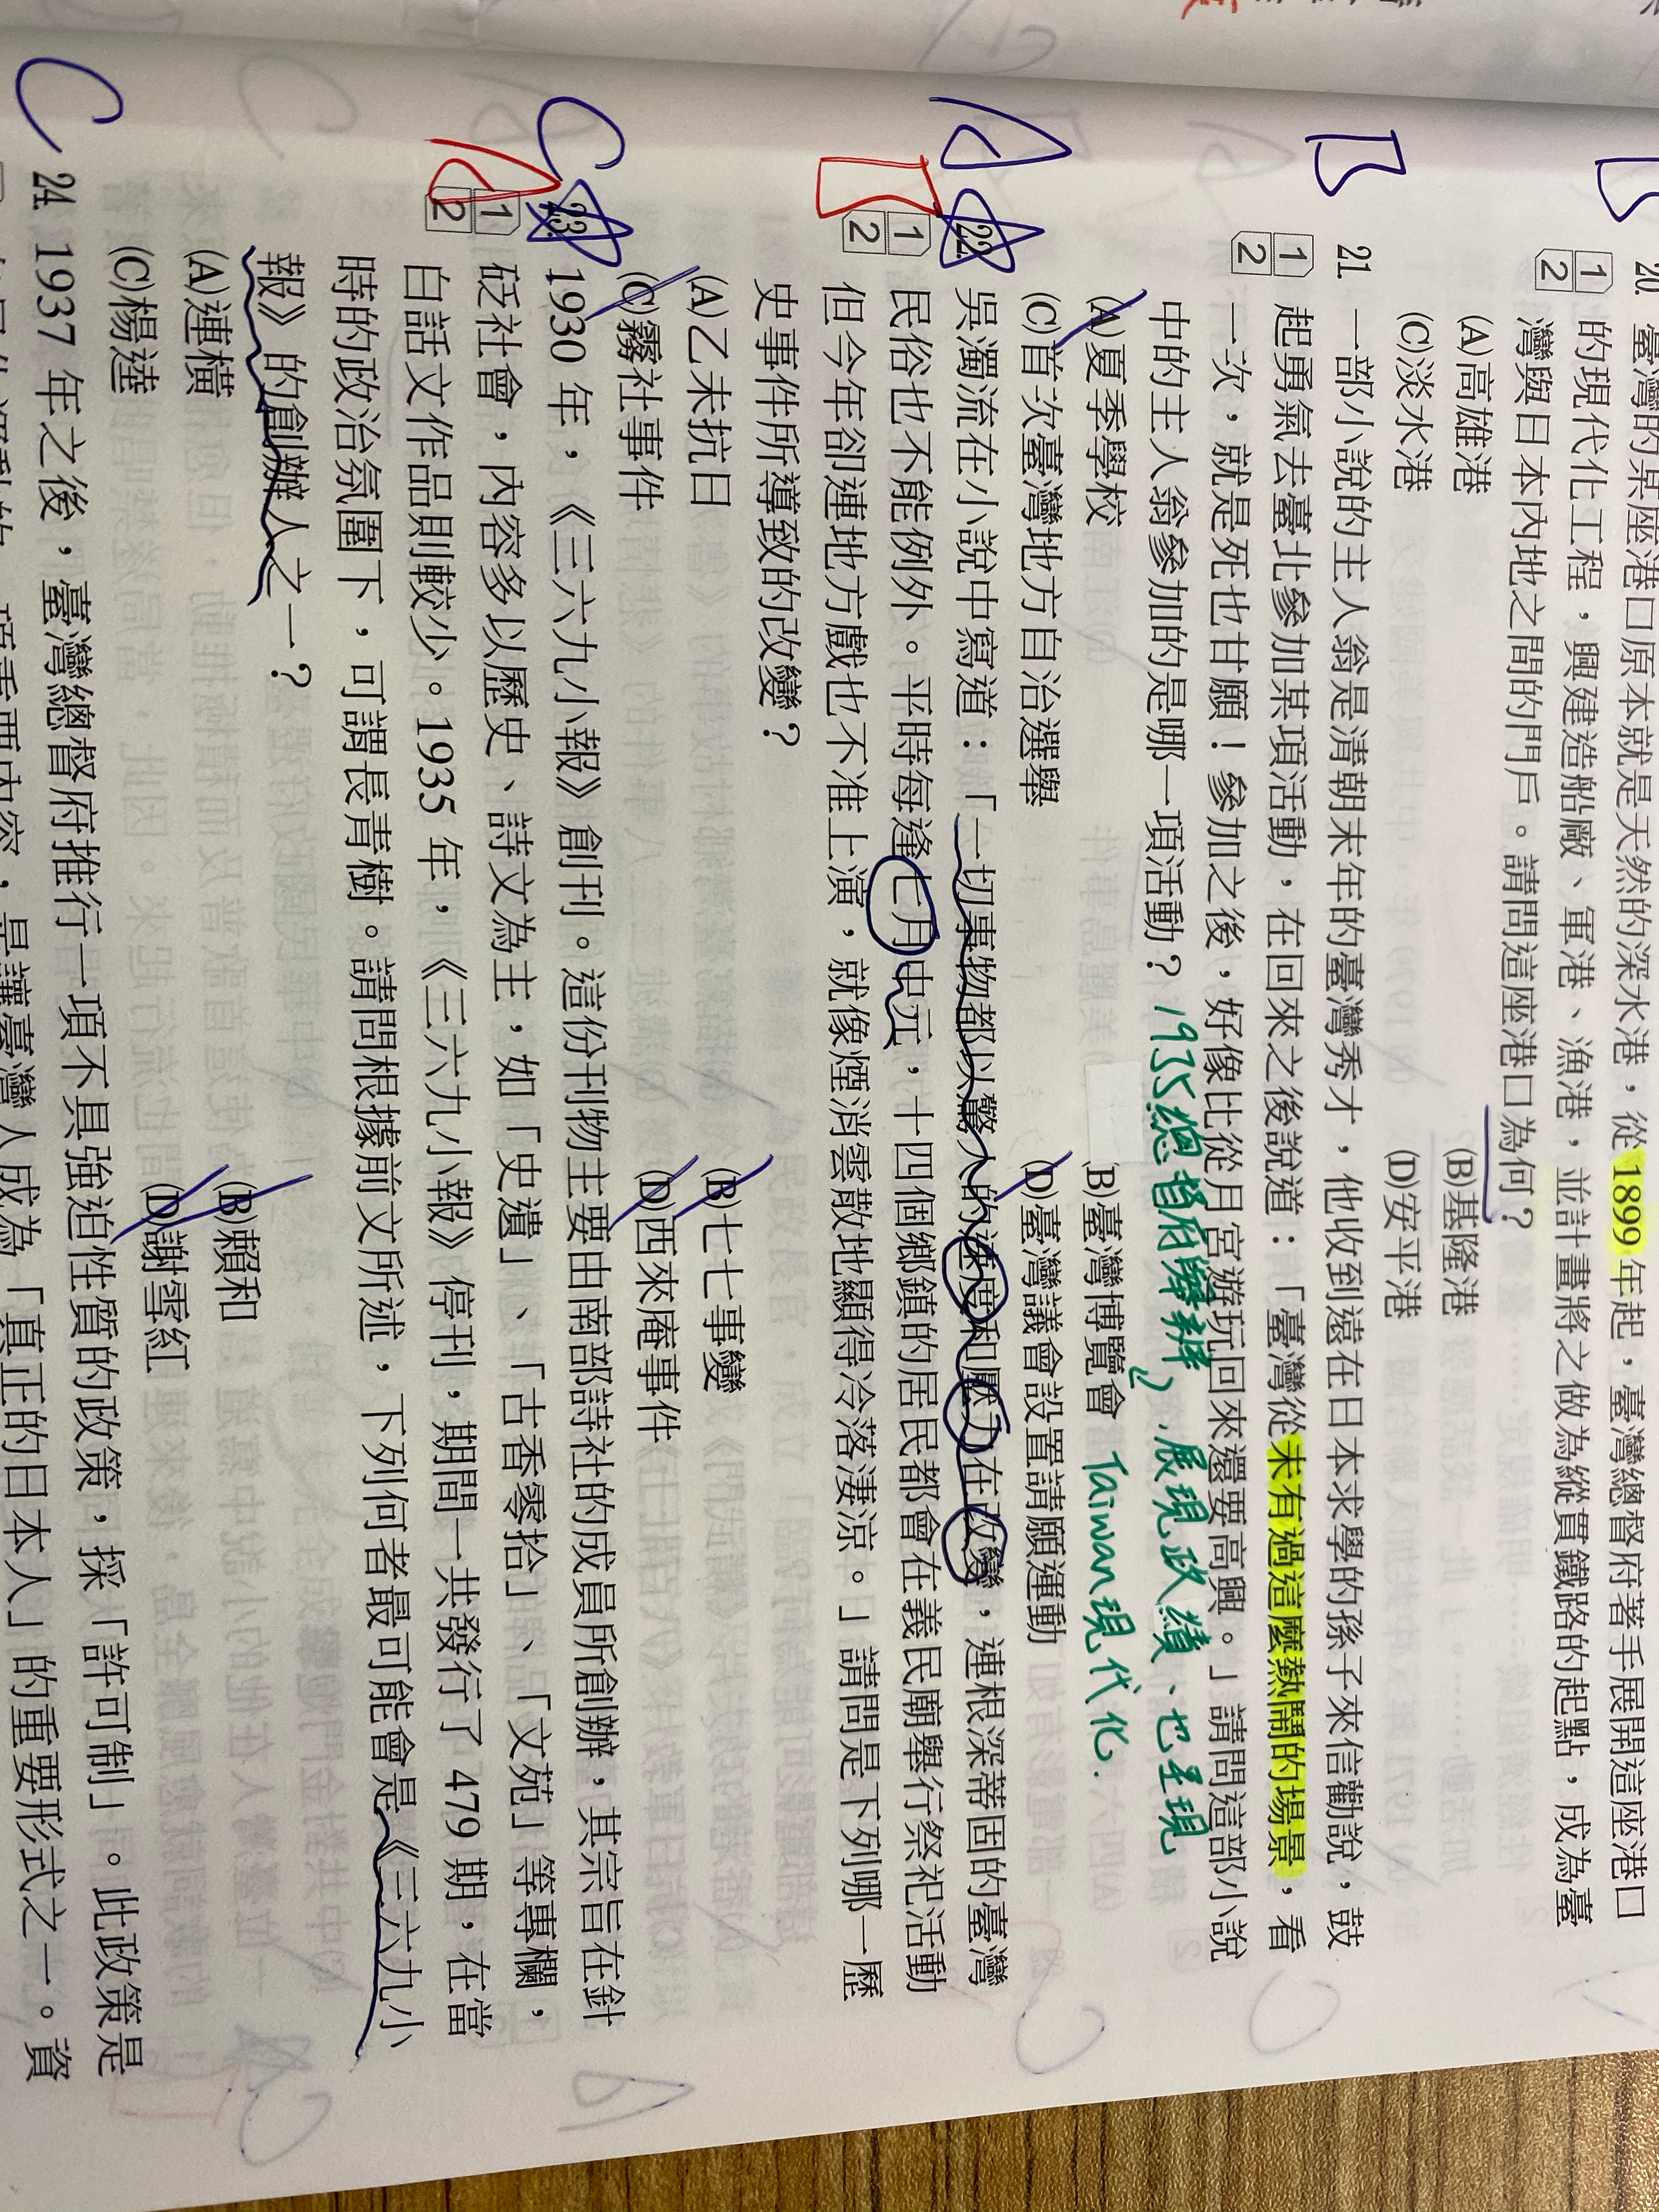 20. 臺灣的某座港口原本就是天然的深水港，從 1899 年起，臺灣總督府著手展開這座港口
1
2
的現代化工程，興建造船廠、軍港、漁港，並計畫將之做為縱貫鐵路的起點，成為臺
灣與日本內地之間的門戶。請問這座港口為何？
(A)高雄港 (B)基隆港
(C)淡水港 (D)安平港
B
21. 一部小說的主人翁是清朝末年的臺灣秀才，他收到遠在日本求學的孫子來信勸說，鼓
1
2
起勇氣去臺北參加某項活動，在回來之後說道：「臺灣從未有過這麼熱鬧的場景，看
一次，就是死也甘願！參加之後，好像比從月宮遊玩回來還要高興。」請問這部小說
中的主人翁參加的是哪一項活動？
1935總督府舉辦，展現政績、也呈現
Taiwan現代化.
(A)夏季學校 (B)臺灣博覽會
(C)首次臺灣地方自治選舉 (D)臺灣議會設置請願運動
A
B
22. 吳濁流在小說中寫道：「一切事物都以驚人的速度和壓力在改變，連根深蒂固的臺灣
1
2
民俗也不能例外。平時每逢七月中元，十四個鄉鎮的居民都會在義民廟舉行祭祀活動
但今年卻連地方戲也不准上演，就像煙消雲散地顯得冷落淒涼。」請問是下列哪一歷
史事件所導致的改變？
(A)乙未抗日 (B)七七事變
(C)霧社事件 (D)西來庵事件
C
A
23. 1930 年，《三六九小報》創刊。這份刊物主要由南部詩社的成員所創辦，其宗旨在針
1
2
砭社會，內容多以歷史、詩文為主，如「史遺」、「古香零拾」、「文苑」等專欄，
白話文作品則較少。1935 年，《三六九小報》停刊，期間一共發行了 479 期，在當
時的政治氛圍下，可謂長青樹。請問根據前文所述，下列何者最可能會是《三六九小
報》的創辦人之一？
(A)連橫 (B)賴和
(C)楊逵 (D)謝雪紅
C
24. 1937 年之後，臺灣總督府推行一項不具強迫性質的政策，採「許可制」。此政策是
重要內容，是讓臺灣人成為「真正的日本人」的重要形式之一。資